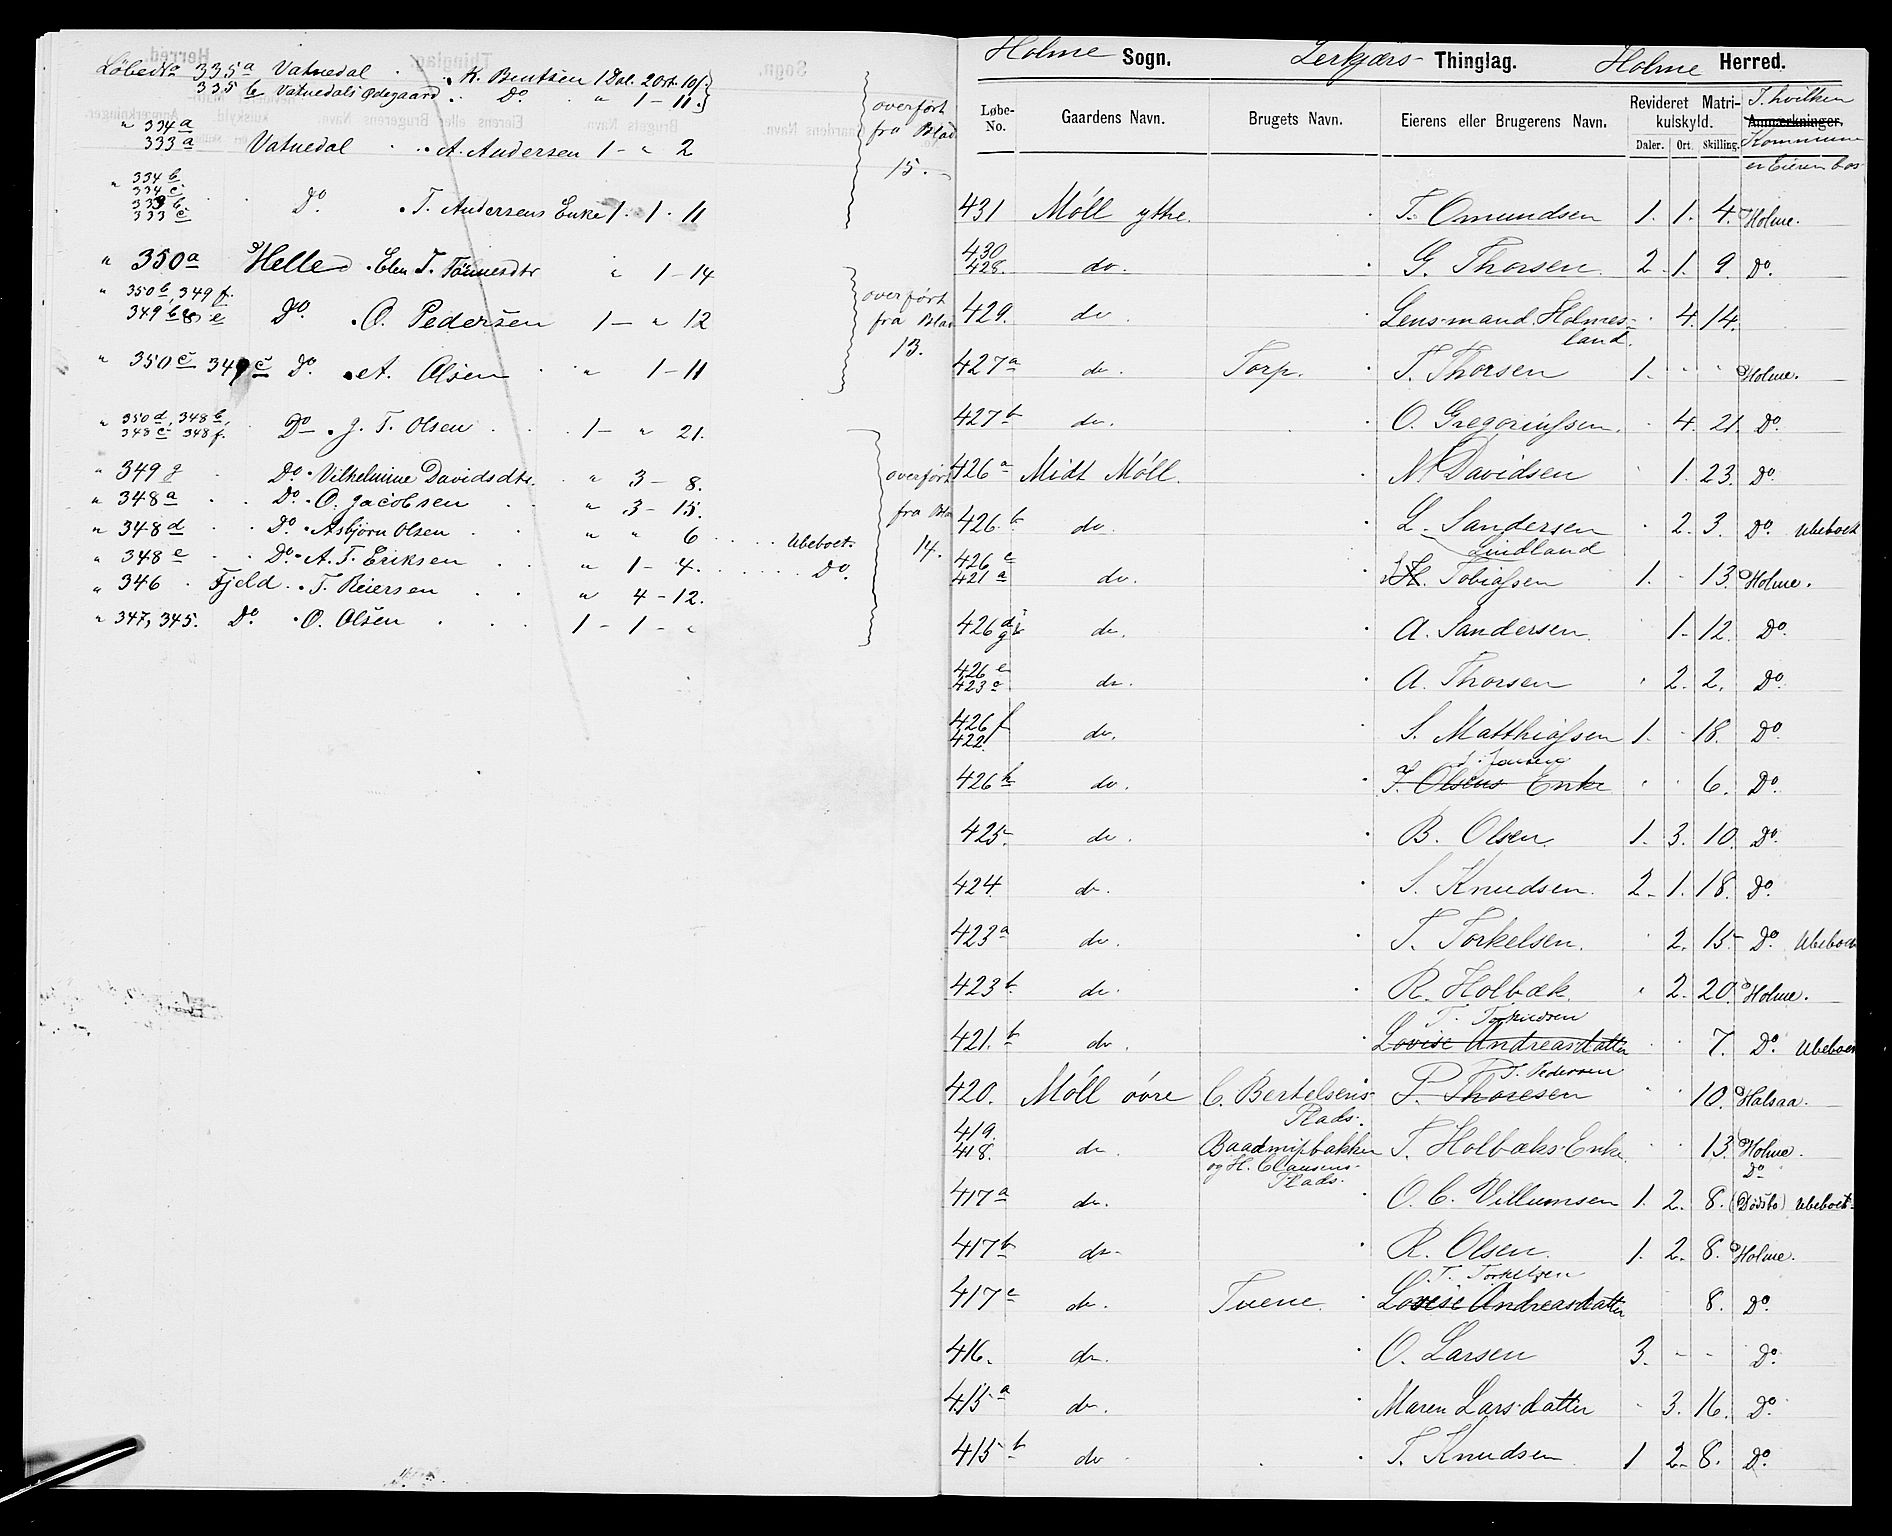 LøbeNo 335a Vatnedal . . K. Bentsen 1 Dal. 2 Ort. 10 ß.
335b Vatnedals Ødegaard . . Do . " 1 - 11.
" 334a
333a Vatnedal . . A. Andersen 1 - " 2
overført fra Blad 15.
" 334b
334c
333b
333c Do. . T. Andersens Enke 1 . 1 . 11
" 350a Helle . Elen T. Tønnesdtr " 1 - 14
" 350b, 349f.
349b & e Do. . O. Pedersen 1 - " 12
overført fra Blad 13.
" 350c 349c Do . A. Olsen . " 1 - 11
" 350d, 348b,
348c 348f. Do . J. T. Olsen . . 1 - " 21.
" 349g . Do . Vilhelmine Davidsdtr. . " 3 - 8.
" 348a . . Do . O. Jacobsen . . " 3 - 15.
" 348d . . Do . Asbjørn Olsen . " " 6 . . . . Ubeboet.
" 348e . . Do . A. T. Eriksen . " 1 - 4. . . . . . Do.
" 346 . Fjeld . . T. Reiersen . . " 4 - 12.
" 347, 345. Do . O. Olsen . . . 1 - 1 - "
overført fra Blad 14.
Holme Sogn. Lerkjærs- Thinglag. Holme Herred.
Løbe-No. Gaardens Navn. Brugets Navn. Eierens eller Brugerens Navn. Revideret Matrikulskyld. Anmærkninger.
I hvilken Kommune er Eieren bos
Daler. Ort. Skilling.
431 Møll ytre. . T. Omundsen 1. 1. 4. Holme.
430
428. do. . G. Thorsen. 2. 1. 9. Do.
429. do . Lensmand Holmesland. . 4. 14.
427a do. Torp. . T. Thorsen 1. . . Holme.
427b do. . O. Gregoriussen. . 4. 21. Do.
426a Midt Møll. . N. Davidsen . 1. 23. Do.
426.b do . L. Sandersen . 2. 3. Do. Ubeboet
Lindland
426c
421a do. . H. Tobiassen 1. . 13. Holme.
426d
g do. . A. Sandersen. 1. 12. Do.
426e
423c do. . A. Thorsen . 2. 2. Do.
426f
422. do. . S. Matthiassen 1. . 18. Do.
426h do. . T. Olsens Enke . . 6. Do.
425. do. . B. Olsen. 1. 3. 10. Do.
424. do. . S. Knudsen. 2. 1. 18. Do.
423a do. . T. Torkelsen. . 2. 15. Do. Ubeboet
423b. do. . R. Holbæk. . 2. 20. Holme.
421.b do. . Lovise Andreasdatter . . 7. Do. Ubeboet
T. Pedersen
420. Møll øvre C. Bertelsens Plads. P. Thoresen . . 10. Halsaa.
419.
418. do. Baadmisbakken og H. Clausens Plads. T. Holbæks Enke. . . 13. Holme.
Do
417a do. . O. C. Villumsen 1. 2. 8. (Dødsbo) Ubeboet.
417b do. . R. Olsen. 1. 2. 8. Holme.
T. Torkelsen
417c do. Tuene. . Lovise Andreasdatter 8. Do.
416. do. . O. Larsen 3. - - Do.
415a do. . Maren Larsdatter . 3. 16. Do.
415b do . T. Knudsen 1 2. 8. Do.